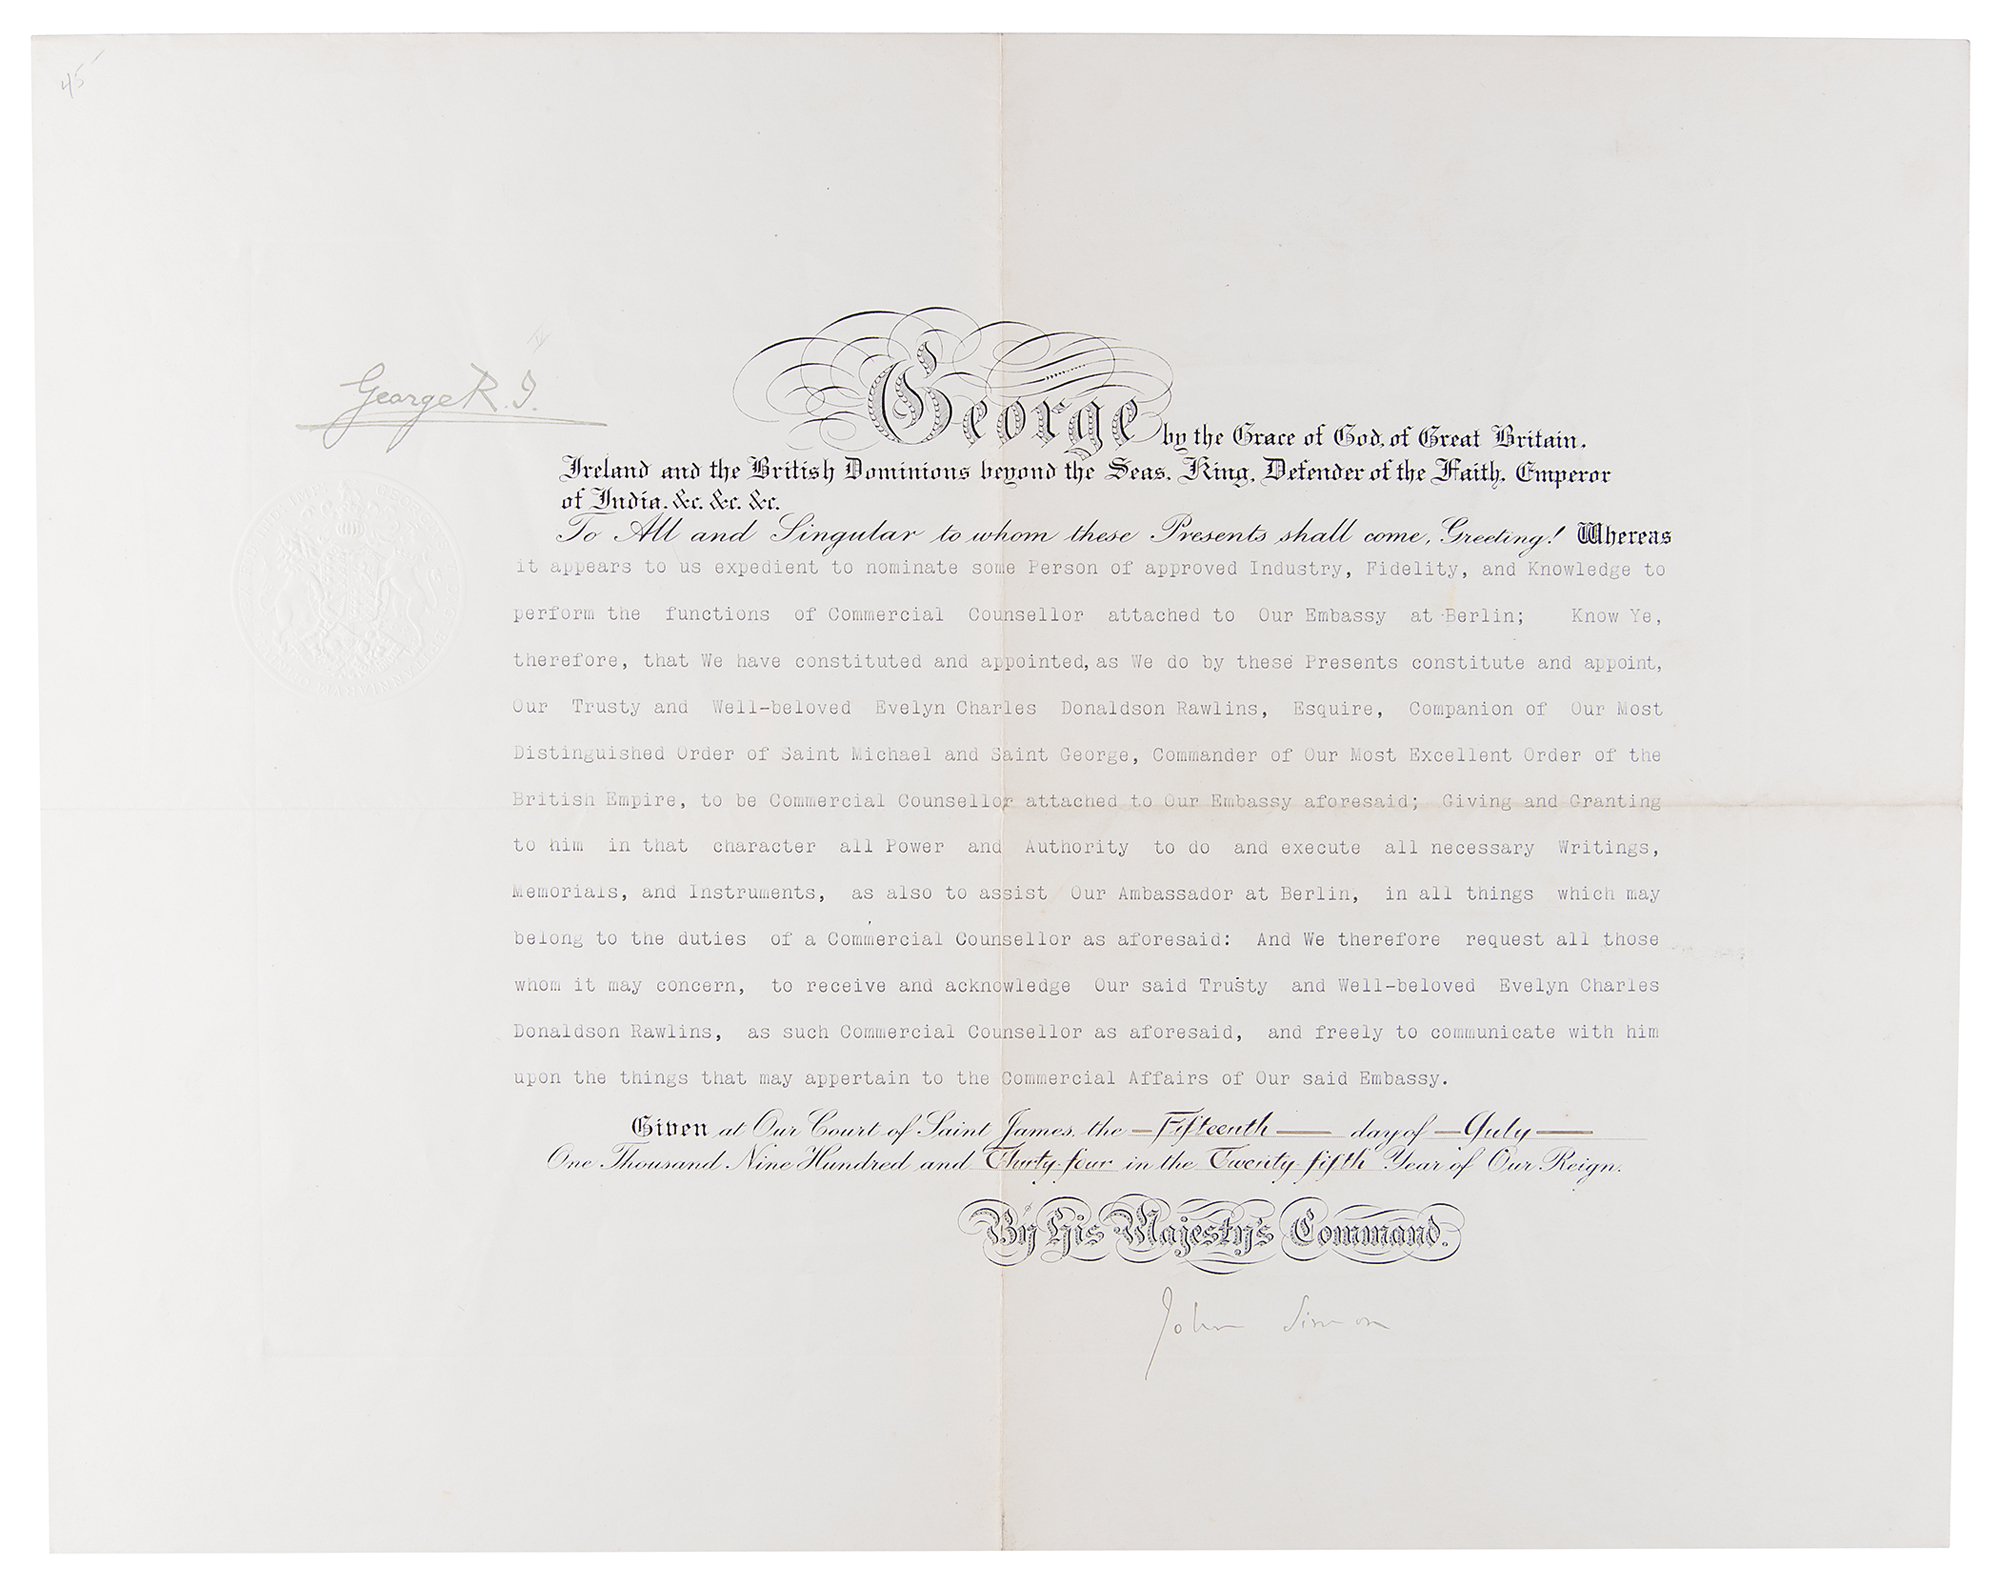 45
George R.I.
George by the Grace of God, of Great Britain,
Ireland and the British Dominions beyond the Seas, King, Defender of the Faith, Emperor
of India, &c. &c. &c.
To All and Singular to whom these Presents shall come, Greeting! Whereas
it appears to us expedient to nominate some Person of approved Industry, Fidelity, and Knowledge to
perform the functions of Commercial Counsellor attached to Our Embassy at Berlin; Know Ye,
therefore, that We have constituted and appointed, as We do by these Presents constitute and appoint,
Our Trusty and Well-beloved Evelyn Charles Donaldson Rawlins, Esquire, Companion of Our Most
Distinguished Order of Saint Michael and Saint George, Commander of Our Most Excellent Order of the
British Empire, to be Commercial Counsellor attached to Our Embassy aforesaid; Giving and Granting
to him in that character all Power and Authority to do and execute all necessary Writings,
Memorials, and Instruments, as also to assist Our Ambassador at Berlin, in all things which may
belong to the duties of a Commercial Counsellor as aforesaid: And We therefore request all those
whom it may concern, to receive and acknowledge Our said Trusty and Well-beloved Evelyn Charles
Donaldson Rawlins, as such Commercial Counsellor as aforesaid, and freely to communicate with him
upon the things that may appertain to the Commercial Affairs of Our said Embassy.
Given at Our Court of Saint James, the — Fifteenth — day of — July —
One Thousand Nine Hundred and Thirty-four in the Twenty-fifth Year of Our Reign.
By His Majesty's Command.
John Simon